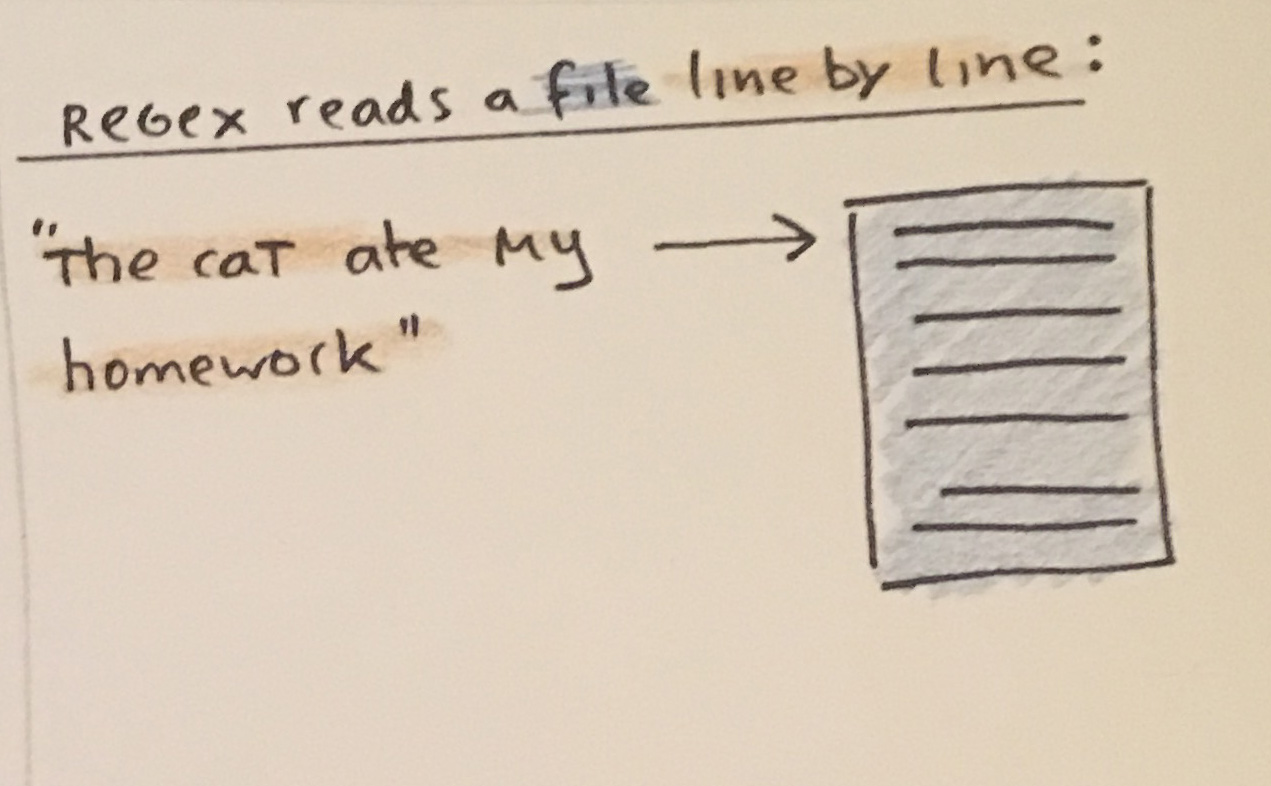 ReGex reads a file line by line:
"The caT ate My
homework"